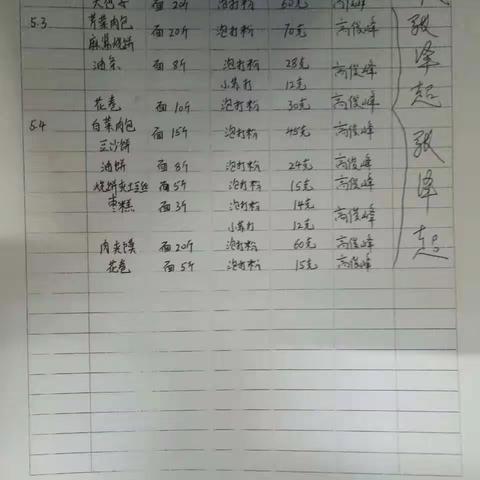 面 20斤 泡打粉 60克 高俊峰
5.3 芹菜肉包 面 20斤 泡打粉 70克 高俊峰
麻酱烧饼
油条 面 8斤 泡打粉 28克 高俊峰
小苏打 12克
花卷 面 10斤 泡打粉 30克 高俊峰
5.4 白菜肉包 面 15斤 泡打粉 45克 高俊峰
豆沙饼
油饼 面 8斤 泡打粉 24克 高俊峰
烧饼夹土豆丝 面 5斤 泡打粉 15克 高俊峰
枣糕 面 3斤 泡打粉 14克 高俊峰
小苏打 12克
肉夹馍 面 20斤 泡打粉 60克 高俊峰
花卷 面 5斤 泡打粉 15克 高俊峰
张泽起
张泽起